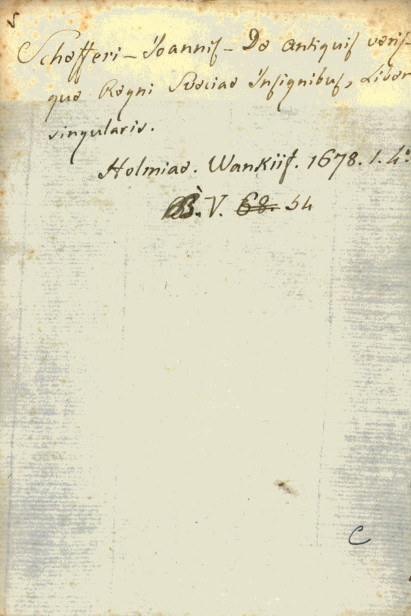 Schefferi - Joannis - De antiquis veris-
que Regni Sveciae Insignibus, Liber
singularis.
Holmiae. Wankiif. 1678. 1. 4:
B. V. 68. 54
C